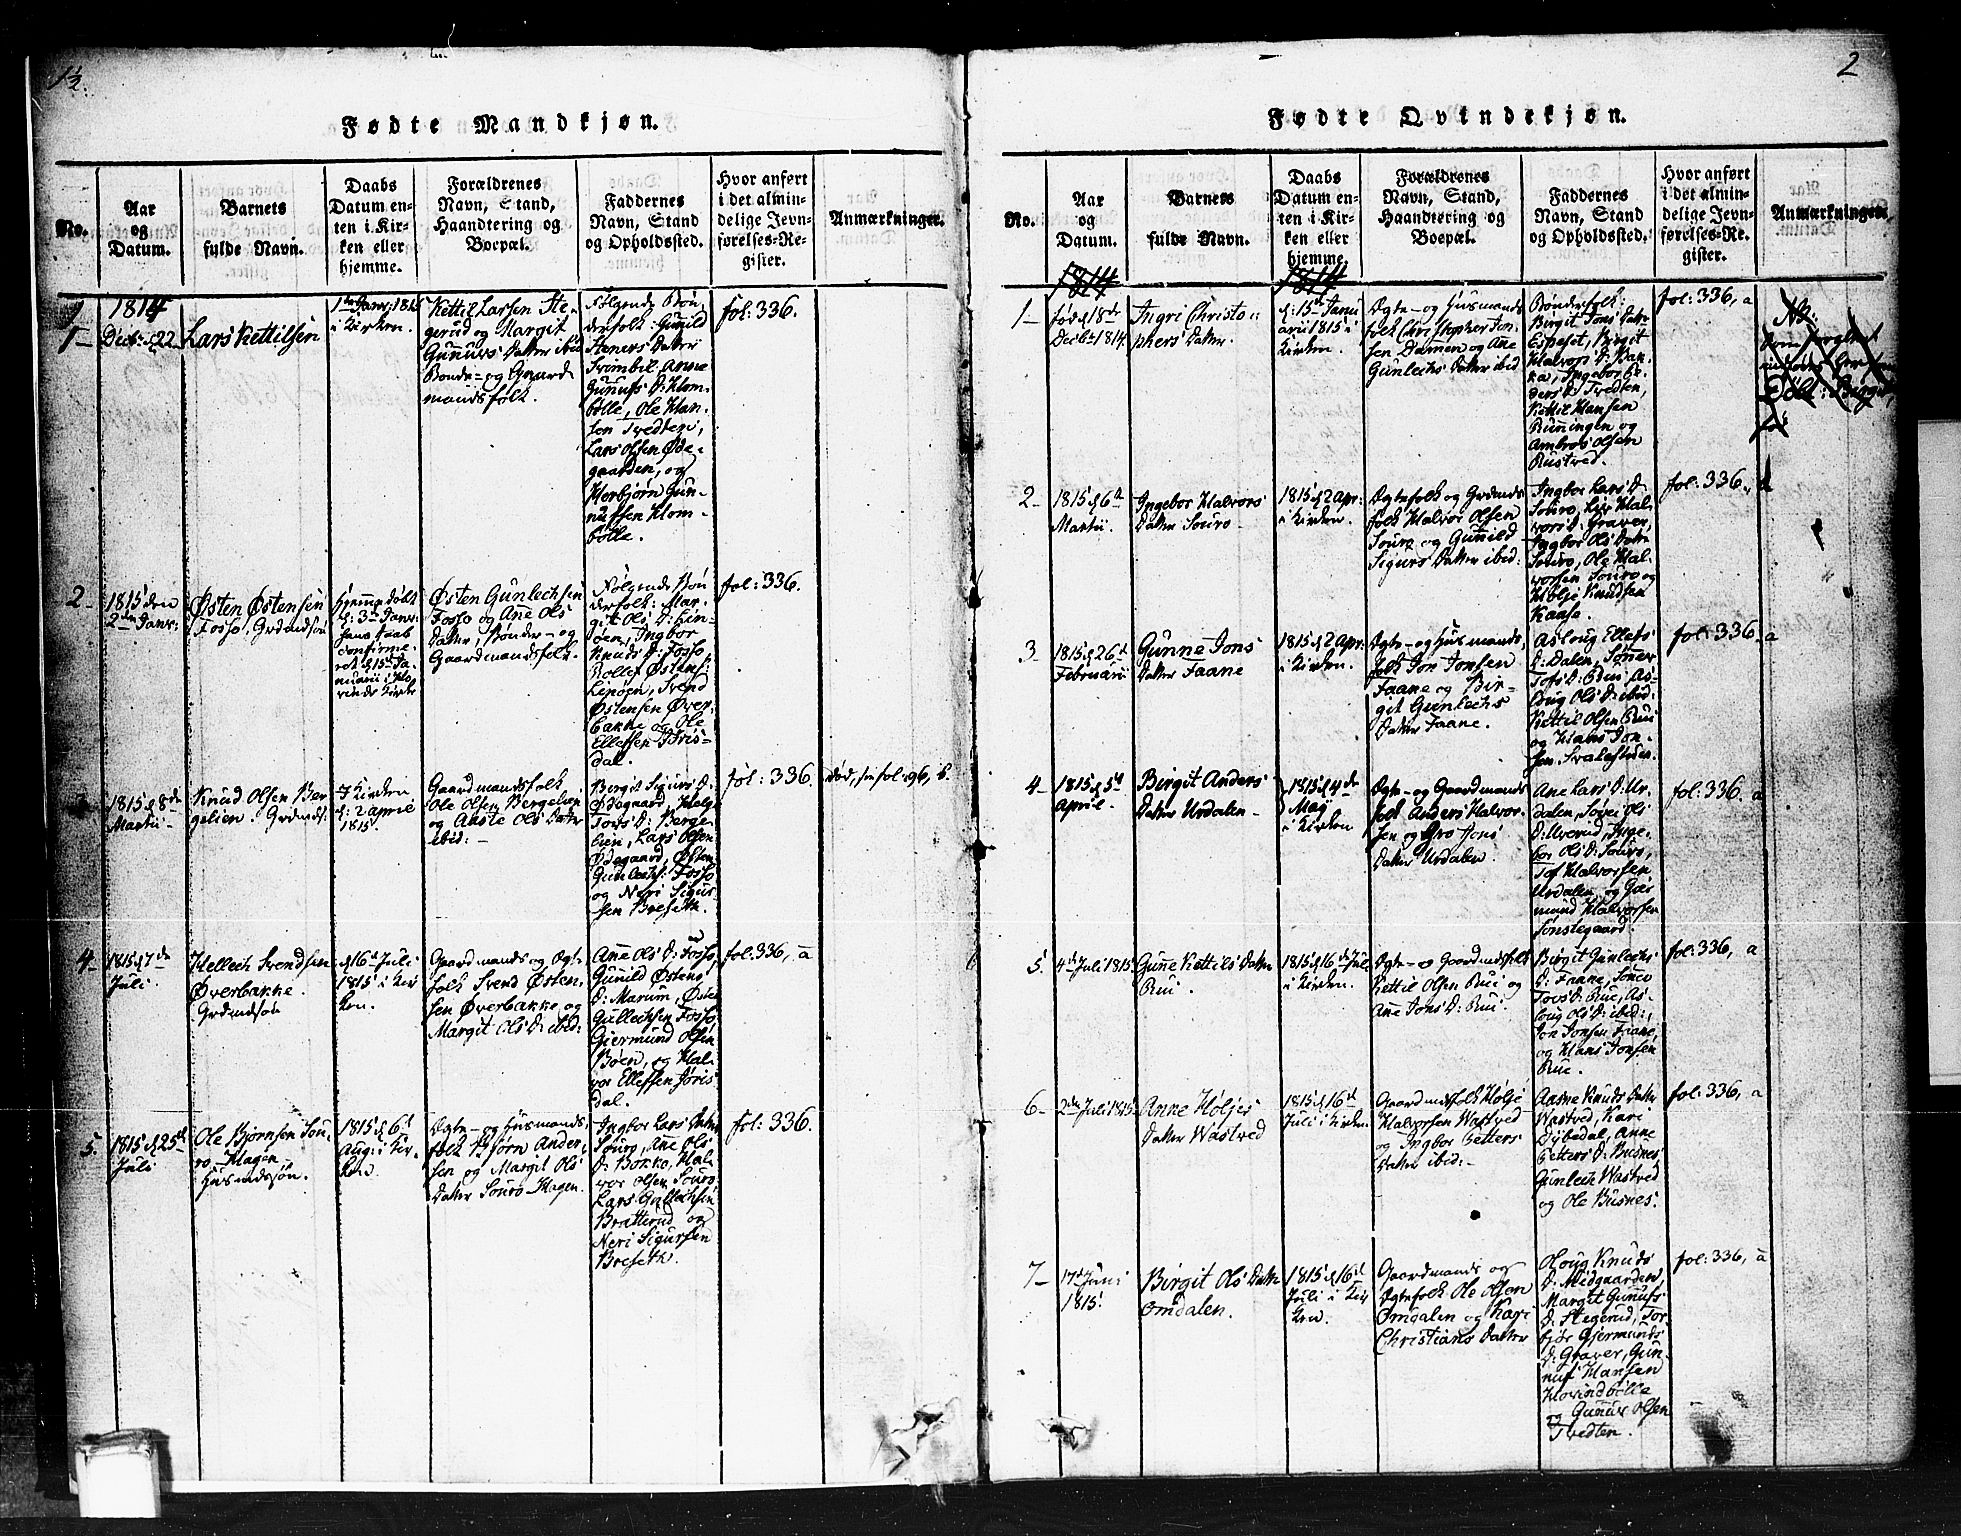 1½
Fødte Mandkjøn.
No.
Aar
og
Datum.
Barnets
fulde Navn.
Daabs
Datum en-
ten i Kir-
ken eller
hjemme.
Forældrenes
Navn, Stand,
Haandtering og
Boepæl.
Faddernes
Navn, Stand
og Opholdssted.
Hvor anført
i det almin-
delige Jevn-
førelses-Re-
gister.
Anmærkninger.
1814
1-
Decbr d 22
Lars Kettilsen
1ste Janr: 1815
i Kirken.
Kettil Larsen Ste-
gerud og Margit
Gunufs Datter ibid
Bonde- og Gaard-
mandsfolk.
Følgende Bøn-
derfolk: Gunild
Steners Datter
Frimbil Anne
Gunufs D: Klom-
bölle, Ole Han-
sen Tredten,
Lars Olsen Øde-
gaarden, og
Herbjørn Gun-
nufsen Klom-
bölle.
fol: 336.
2-
1815 den
2den Janr:
Østen Østensen
Fosso. Grdmdsøn
Hjemmedöbt
d: 3die Janr:
hans Daab
confirme-
ret d 15de Ja-
nuarii i Ho-
vinds Kirke
Østen Gunlechsen
Fosso og Anne Ols
Datter, Bønder- og
Gaardmandsfolk.
Følgende Bøn
derfolk: Mar-
git Ols D: Lin-
döen, Ingbor
Knuds D: Fosso
Rollef Østens:
Lipöen, Svend
Østensen Øver-
bakke og Ole
Ellefsen Jöris-
dal.
fol: 336.
3
1815 d 8de
Martii-
Knud Olsen Ber-
gelien. Grdmds:
I Kirken
d: 2 April
1815.
Gaardmandsfolk
Ole Olsen Bergelien
og Aaste Ols Datter
ibid:-
Birgit Sigurs D:
Ødegaard, Helge
Tovs D: Berge-
lien, Lars Olsen
Ødegaard, Østen
Gunlechs: Fosso
og Neri Sigur-
sen Breseth.
fol: 336
död, sin fol: 96, b.
4-
1815 d 7de
Juli.
Hellech Svendsen
Øverbakke.
Grdmdsøn
d 16de Juli
1815 i Kir
ken.
Gaardmands og Ægte
folk Svend Østen-
sen Øverbakke og
Margit Ols D: ibid:
Anne Ols D: Fosso,
Gunild Østens
D: Marum, Østen
Gullechsen Fosso
Giermund Olsen
Böen, og Hal-
vor Ellefsen Jöris
dal.
fol: 336, a
5.
1815 d 25de
Juli
Ole Bjørnsen Sou-
ro-Hagen-
Husmdssøn.
1815 d 6t
Aug: i Kir-
ken.
Ægte- og Husmands
folk Bjørn Ander-
sen og Margit Ols
Datter Souro-Hagen.
Ingbor Lars Datter
Souro, Anne Ols
D: Bokko, Hal-
vor Olsen Souro
Lars Gullechsen
Bratterud og
Neri Sigursen
Breseth.
fol: 336.
2
Fødte Qvindekjøn.
No.
Aar
og
Datum.
Barnets
fulde Navn.
Daabs
Datum en-
ten i Kir-
ken eller
hjemme.
Forældrenes
Navn, Stand,
Haandtering og
Boepæl.
Faddernes
Navn, Stand
og Opholdssted.
Hvor anført
i det almin-
delige Jevn-
førelses-Re-
gister.
Anmærkninger.
1814
1814
1-
fød d 18de
Decbr 1814
Ingri Christo-
phers Datter.
d: 15de Janu
arii 1815 i
Kirken.
Ægte- og Husmands
folk Christopher Jon-
sen Dammen og Ane
Gunlechs Datter ibid
Bönderfolk:
Birgit Jons Datter
Espeset, Birgit
Halvors D: Bak-
ka, Ingebor Pe-
ders D: Tredten,
Kettil Hansen
Runningen og
Ambros Olsen
Rustved.
fol: 336, a
Nb.
2-
1815 d 6te
Martii
Ingebor Halvors
Datter Souro-
1815 d 2 Apr:
i Kirken.
Ægtefolk og Grdmds
folk Halvor Olsen
Souro og Gunild
Sigurs Datter ibid:
Ingbor Lars D:
Souro, Liv Hal-
vors D: Graver,
Ingbor Ols Datter
Souro, Ole Hal-
vorsen Souro og
Hølje Knudsen
Kaasa.
fol: 336, a
3-
1815 d 26de
Februarii
Gunne Jons
Datter Faane
1815 d 2 Apr:
i Kirken.
Ægte- og Husmands
folk Jon Jonsen
Faane og Bir-
git Gunlechs
Datter Faane.
Asloug Ellefs
D: Dalen, Sønev
Tofs D: ibid:, As-
loug Ols D: ibid:
Kettil Olsen Rui
og Hans Jon-
sen
fol: 336, a
4-
1815 d 5te
April-
Birgit Anders
Datter Urdalen-
1815 d 4de
Maj
i Kirken
Ægte- og Gaardmands
folk Anders Halvor-
sen og Gro Jons
Datter Urdalen.
Ane Lars D: Ur-
dalen, Søvei Ols
D: Uverud, Inge-
bor Ols D: Souro,
Tof Halvorsen
Urdalen og Gier-
mund Halvorsen
Tonstegaard.
fol: 336. a
5.
4de Juli 1815
Gunne Kettils Datter
Rui.
1815 d 16de Juli
i Kirken.
Ægte- og Gaardmdsfolk
Kettil Olsen Rui og
Ane Jons D: Rui.
Birgit Gunlechs
D: Faane,
Tovs D: Rue, As-
loug Ols D: ibid:,
Jon Jonsen Faane,
og Hans Jonsen
Rue.
fol: 336, a
6-
2den Juli 1815
Anne Höljes
Datter Wastved
1815 d 16de
Juli i Kirken.
Gaardmdsfolk Hölje
Halvorsen Wastved
og Ingbor Petters
Datter ibid:-
Aasne Knuds Datter
Wastved, Kari
Dybedal, Anne
Petters D: Busnes,
Gunlech Wastved
og Ole Busnes.
fol: 336, a
7-
17de Juni
1815.
Birgit Ols Datter
Omdalen.
1815 d 16de
Juli i Kir
ken.
Gaardmands og
Ægtefolk Ole Olsen
Omdalen og Kari
Christians Datter
Oloug Knuds
D: Midgaarden,
Margit Gunufs
D: Stegerud, Tor-
björ Gjermunds
D: Graver, Gun-
nuf Hansen
Hovindbölle
og Gunuv Olsen
Tredten.
fol: 336, a